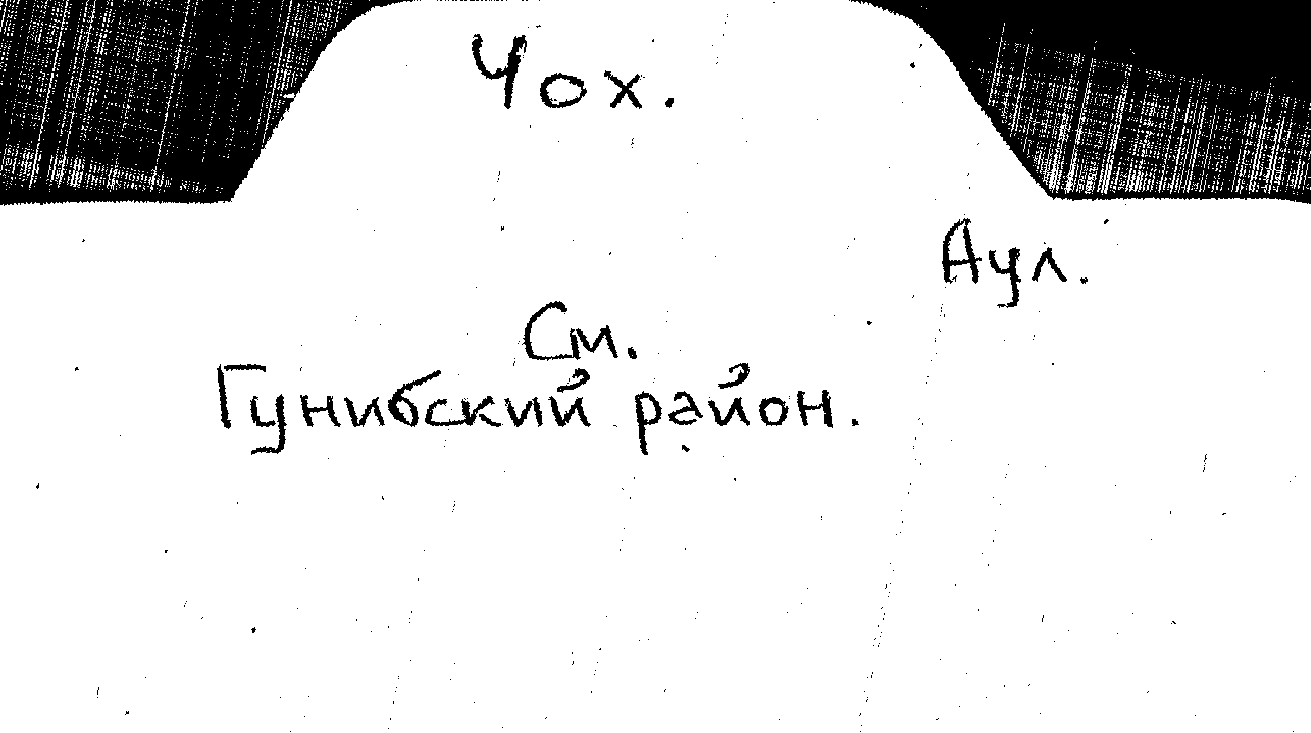 Чох.
Аул.
См.
Гунибский район.